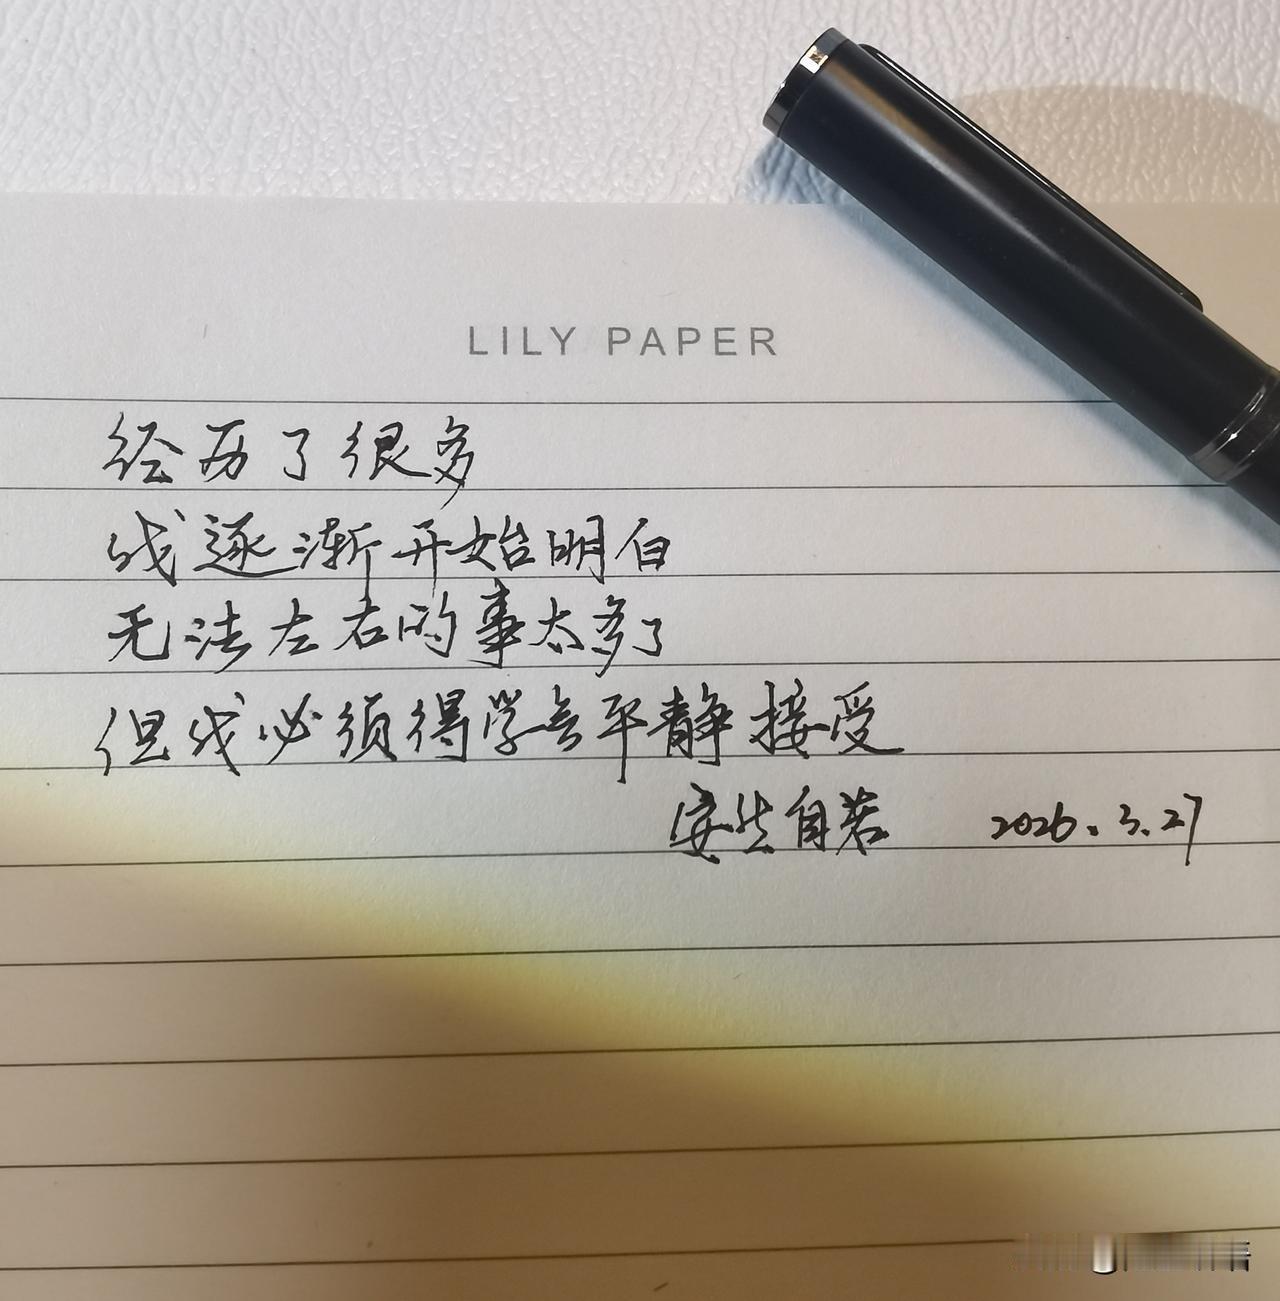 LILY PAPER
经历了很多
我逐渐开始明白
无法左右的事太多了
但我必须得学会平静接受
安生自若 2026.3.27